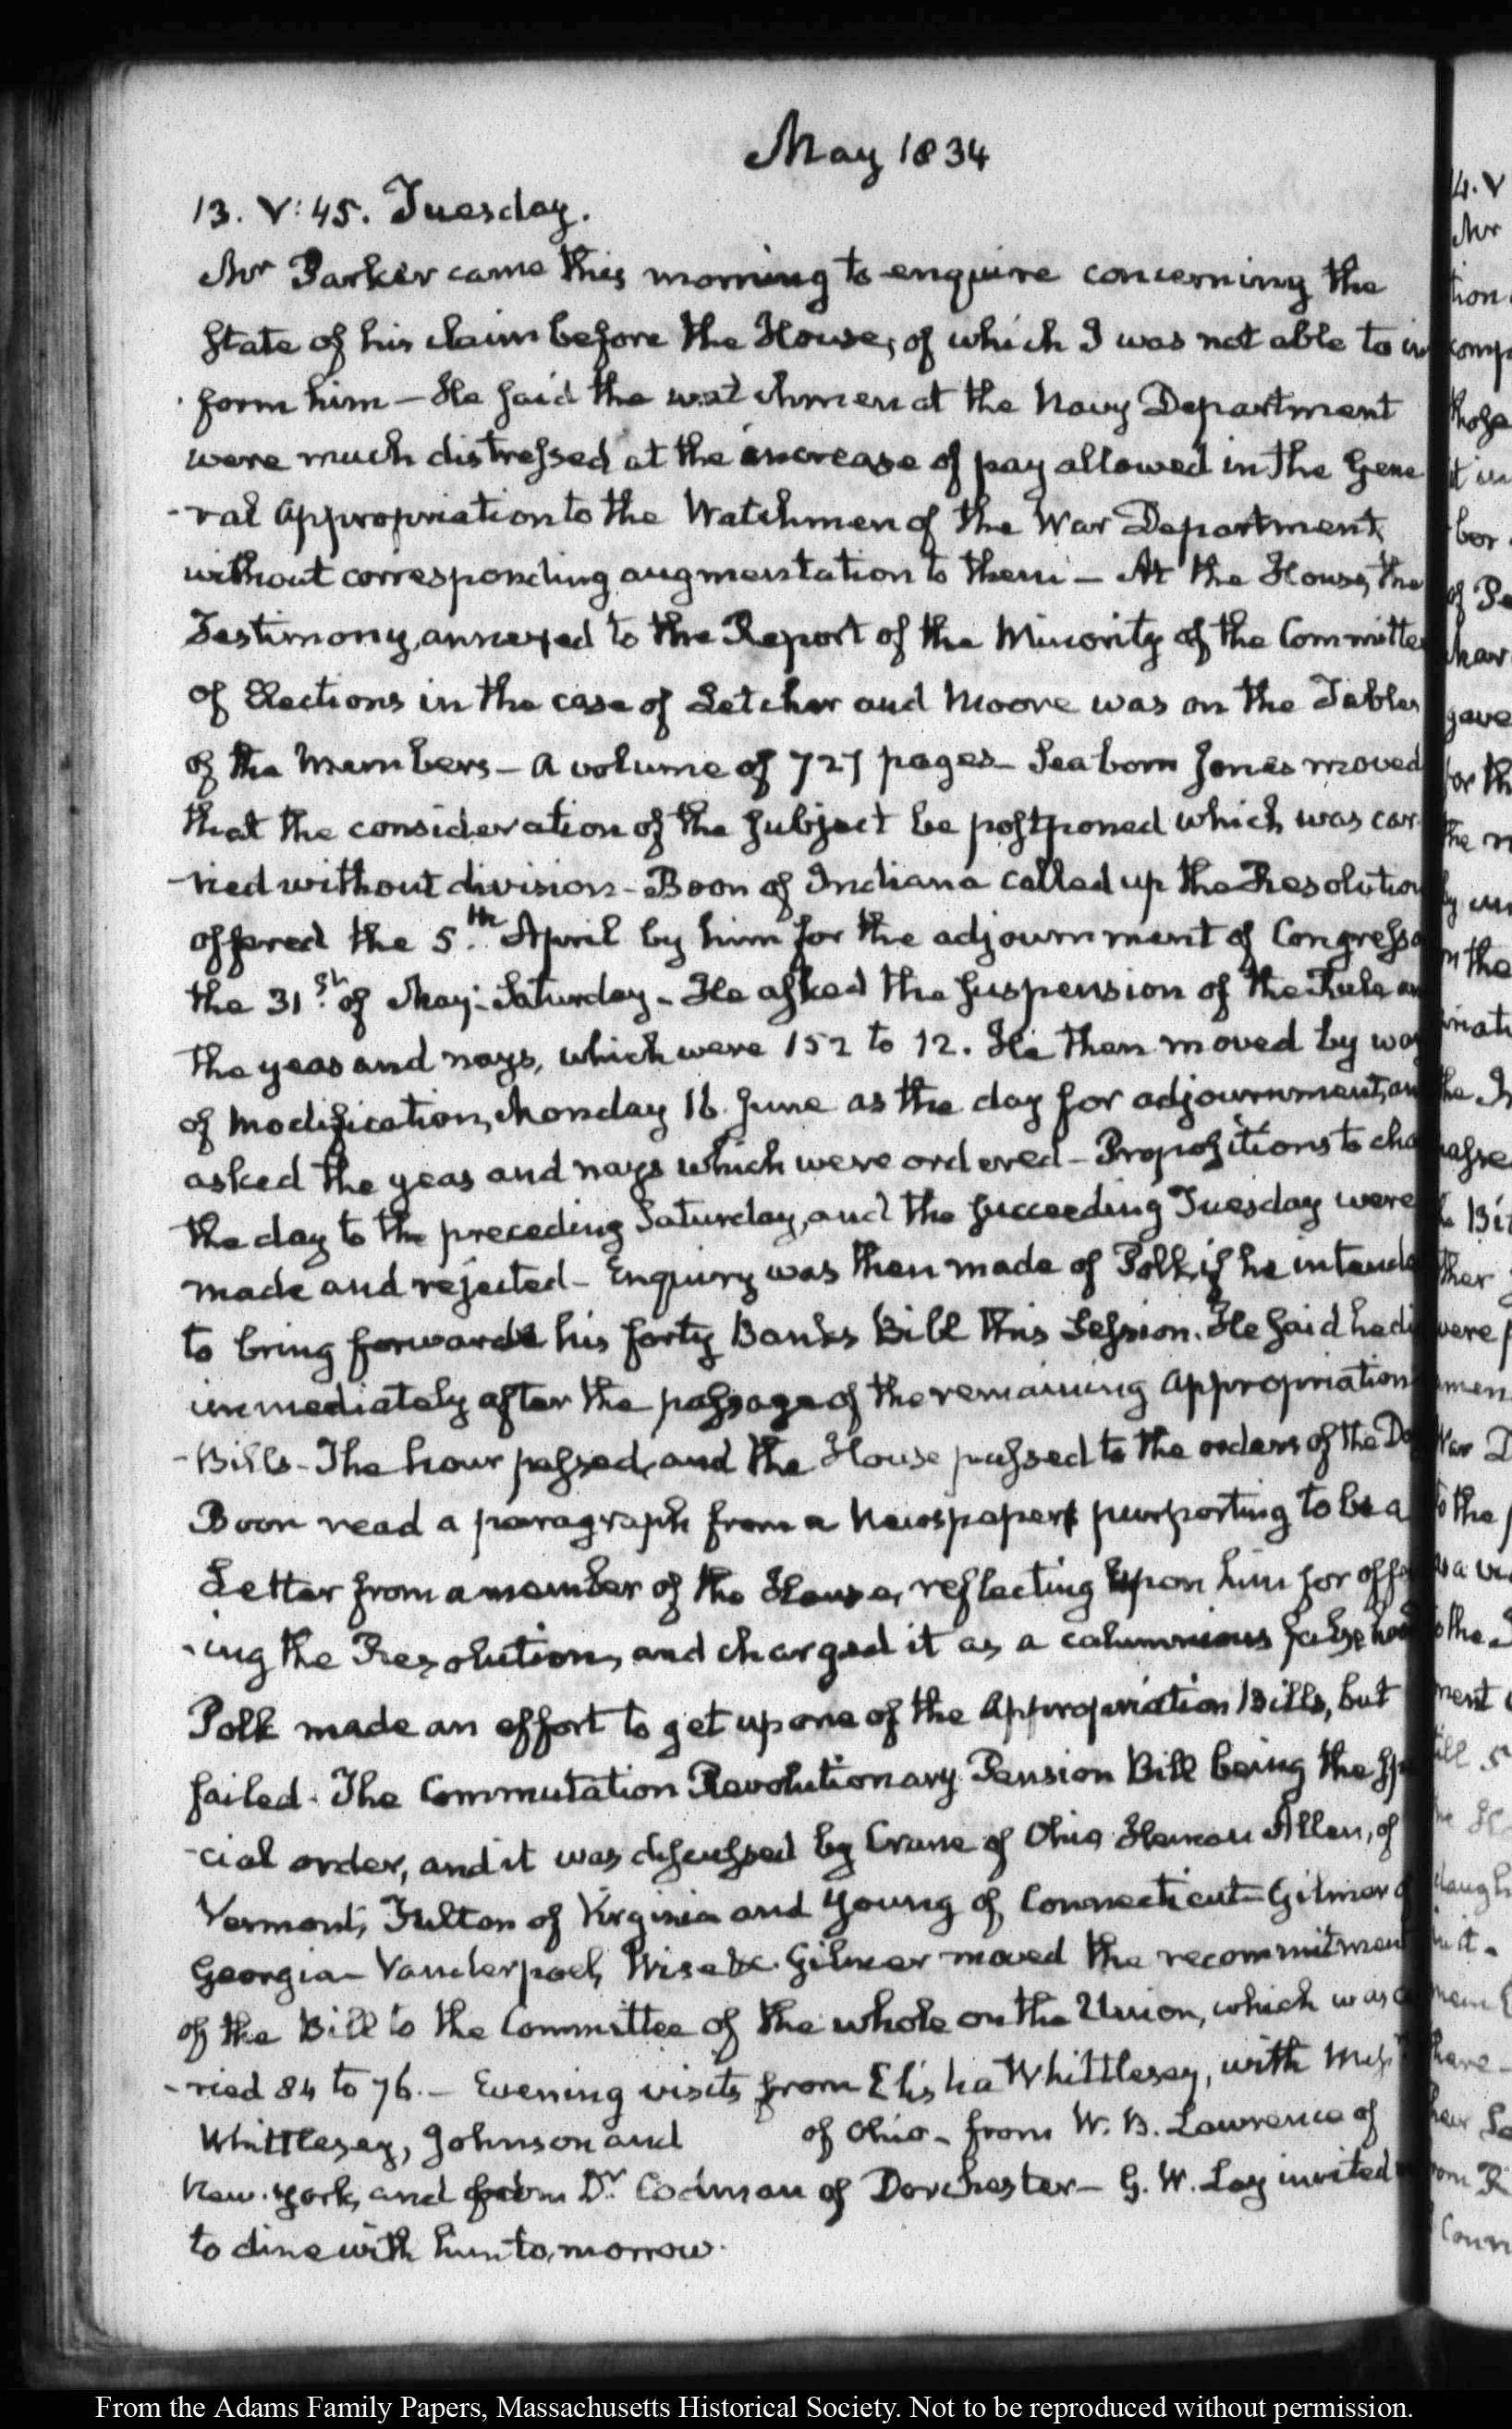 May 1834
13. V:45. Tuesday.
Mr Parker came this morning to enquire concerning the
state of his claim before the House, of which I was not able to in
form him — He said the watchmen at the Navy Department
were much distressed at the increase of pay allowed in the Gene
-ral Appropriation to the Watchmen of the War Department,
without corresponding augmentation to them — At the House, the
Testimony, annexed to the Report of the Minority of the Committee
of Elections in the case of Letcher and Moore was on the Tables
of the Members — a volume of 727 pages — Seaborn Jones moved
that the consideration of the subject be postponed which was car
-ried without division — Boon of Indiana called up the Resolution
offered the 5.th April by him for the adjournment of Congress
the 31st of May. Saturday — He asked the suspension of the Rule
the yeas and nays, which were 152 to 12. He then moved by way
of modification, Monday 16 June as the day for adjournment,
asked the yeas and nays which were ordered — Propositions to
the day to the preceding Saturday, and the succeeding Tuesday were
made and rejected — Enquiry was then made of Polk, if he
to bring forward his forty Banks Bill this Session. He said he
immediately after the passage of the remaining Appropriation
-Bills — The hour passed, and the House passed to the orders of the
Boon read a paragraph from a Newspaper purporting to be a
Letter from a member of the House, reflecting upon him for
-ing the Resolution, and charged it as a calumnious
Polk made an effort to get up one of the Appropriation Bills, but
failed. The Commutation Revolutionary Pension Bill being the
-cial order, and it was discussed by Crane of Ohio Heman Allen, of
Vermont, Fulton of Virginia and Young of Connecticut — Gilmer
Georgia — Vanderpoel, Wise &c. Gilmer moved the recommitment
of the Bill to the Committee of the whole on the Union, which was
-ried 84 to 76. — Evening visits from Elisha Whittlesey, with
Whittlesey, Johnson and of Ohio — from W. B. Lawrence of
New-York, and from Dr. Codman of Dorchester — G. W. Lay invited
to dine with him to-morrow.
From the Adams Family Papers, Massachusetts Historical Society. Not to be reproduced without permission.